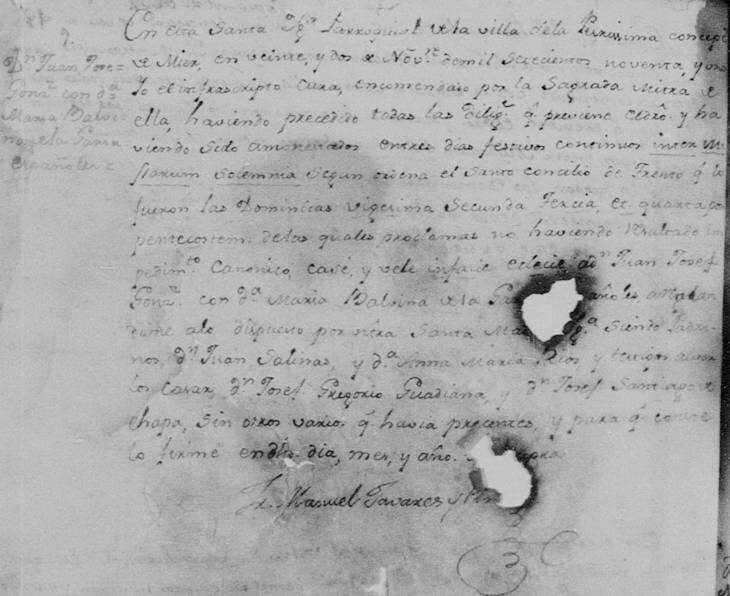 Dn Juan Jose=
Gonz.z con d.a
Maria Balvi
na de la Garza
españoles =
En esta Santa Yg.a Parroquial de la villa de la Purissima concepc
de Mier, en veinte, y dos de Nov.re de mil setecientos noventa, y uno
Yo el infrascripto Cura, encomendado por la Sagrada Mitra de
ella, haviendo precedido todas las dilig.s q.e previene el dro. y ha
viendo sido amonestados en tres dias festivos continuos inter Mi
ssarum solemnia segun ordena el Santo concilio de Trento q.e lo
fueron las Dominicas vigesima Secunda Tercia, et quarta po
pentecostem de las quales proclamas no haviendo resultado im
pedim.to Canonico, case, y vele infacie eclecie, a dn Juan Josef
Gonz.z con d.a Maria Balvina de la Gar españoles
dome alo dispuesto por ntra Santa Ma Yg.a Siendo Padri
nos, dn Juan Salinas, y d.a Anna Maria Rios y testigos a
los casar, dn Josef Gregorio Guadiana, y dn Josef Santiago de
chapa, sin otros varios q.e havia precentes, y para q.e conste
lo firmé en dho. dia, mes, y año. supra
Fr. Manuel Tavares y